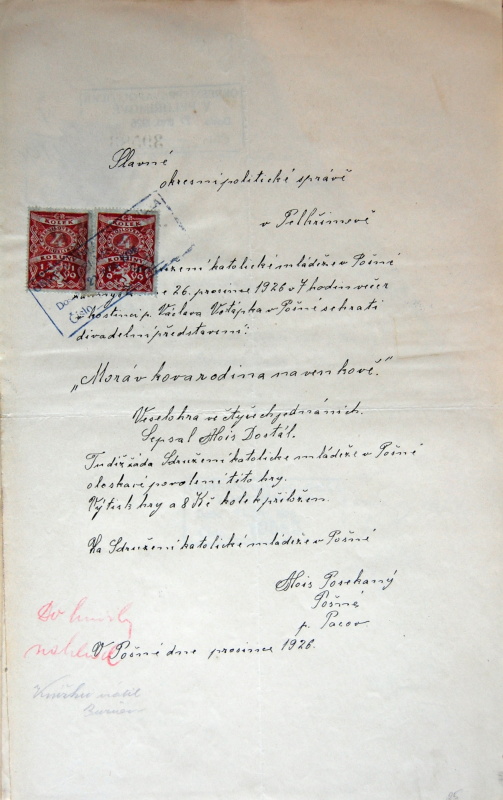 Slavné
okresní politické správě
v Pelhřimově
ČS
KOLEK
4
KORUNY
ČS
KOLEK
4
KORUNY
Číslo
Sdružení katolické mládeže v Pošné
26. prosince 1926 v 7 hodin večer
v hostinci p. Václava Votápka v Pošné sehrati
divadelní představení:
„Morávkova rodina na venkově."
Veselohra ve čtyřech jednáních.
Sepsal Alois Dostál.
Tudíž žádá Sdružení katolické mládeže v Pošné
o laskavé povolení této hry.
Výtisk hry a 8 Kč kolek přiložen.
Za Sdružení katolické mládeže v Pošné
Alois Posekaný
Pošná
p. Pacov
V Pošné dne prosince 1926.
Do knihy
Knížku